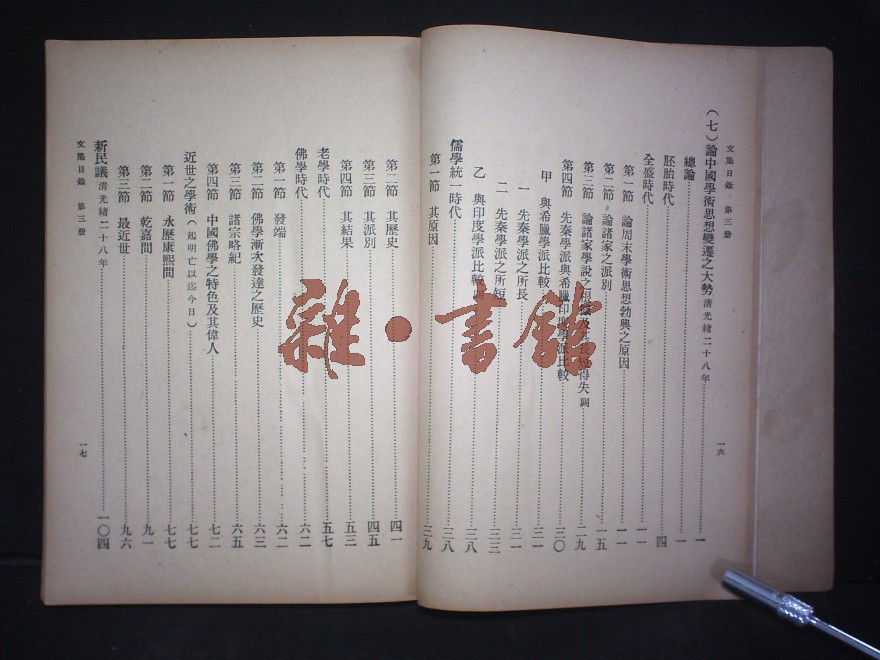 文集目錄 第三册
(七)論中國學術思想變遷之大勢 清光緒二十八年 一
總論 一
胚胎時代 四
全盛時代 一一
第一節 論周末學術思想勃興之原因 一一
第二節 論諸家之派別 一五
第三節 論諸家學說之根據及其長短得失 闕 二九
第四節 先秦學派與希臘印度學派比較 三〇
甲 與希臘學派比較 三一
一 先秦學派之所長 三一
二 先秦學派之所短 三三
乙 與印度學派比較 闕 三八
儒學統一時代 三八
第一節 其原因 三九
一六
第二節 其歷史 四一
第三節 其派別 四五
第四節 其結果 五三
老學時代 五七
佛學時代 六二
第一節 發端 六二
第二節 佛學漸次發達之歷史 六三
第三節 諸宗略紀 六五
第四節 中國佛學之特色及其偉人 七二
近世之學術(起明亡以迄今日) 七七
第一節 永歷康熙間 七七
第二節 乾嘉間 九一
第三節 最近世 九六
新民議 清光緒二十八年 一〇四
文集目錄 第三册
一七
雜·書館